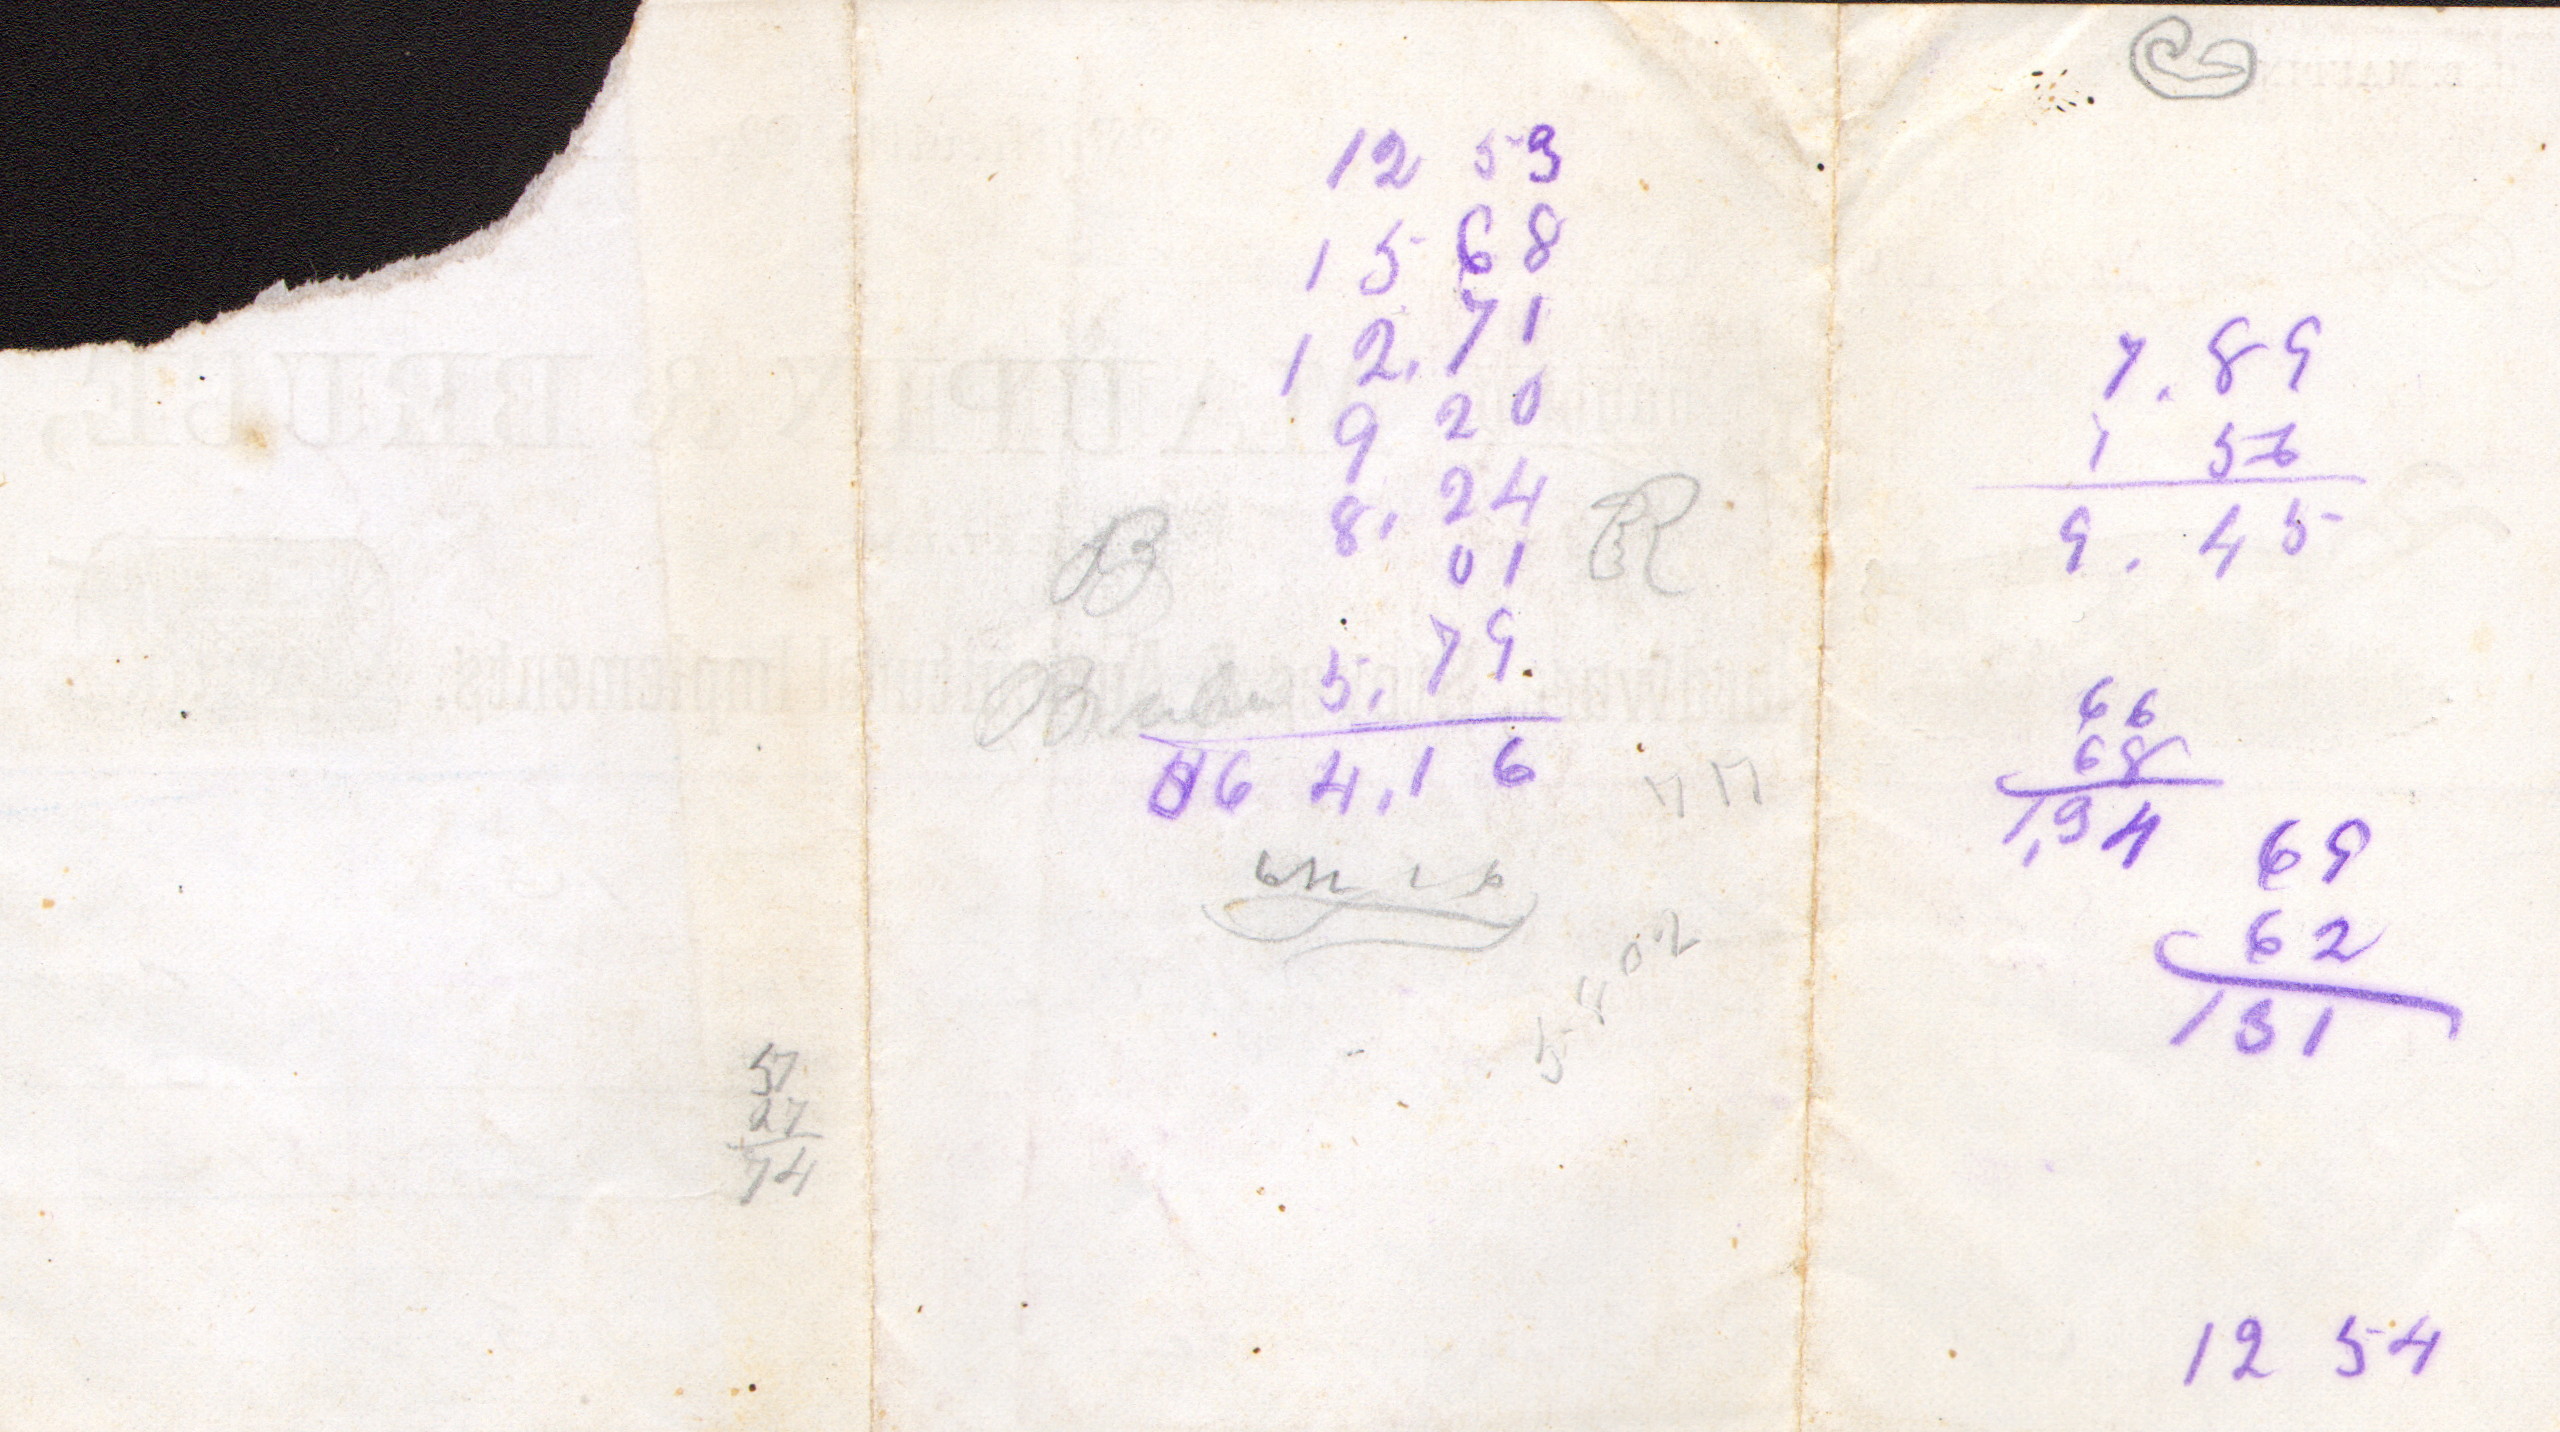 12 53
15 68
12.71
9 20
8.24
01
5.79
64.16
64 16
5802
57
27
74
7.89
1 56
9.45
66
68
1,34
69
62
131
12 54